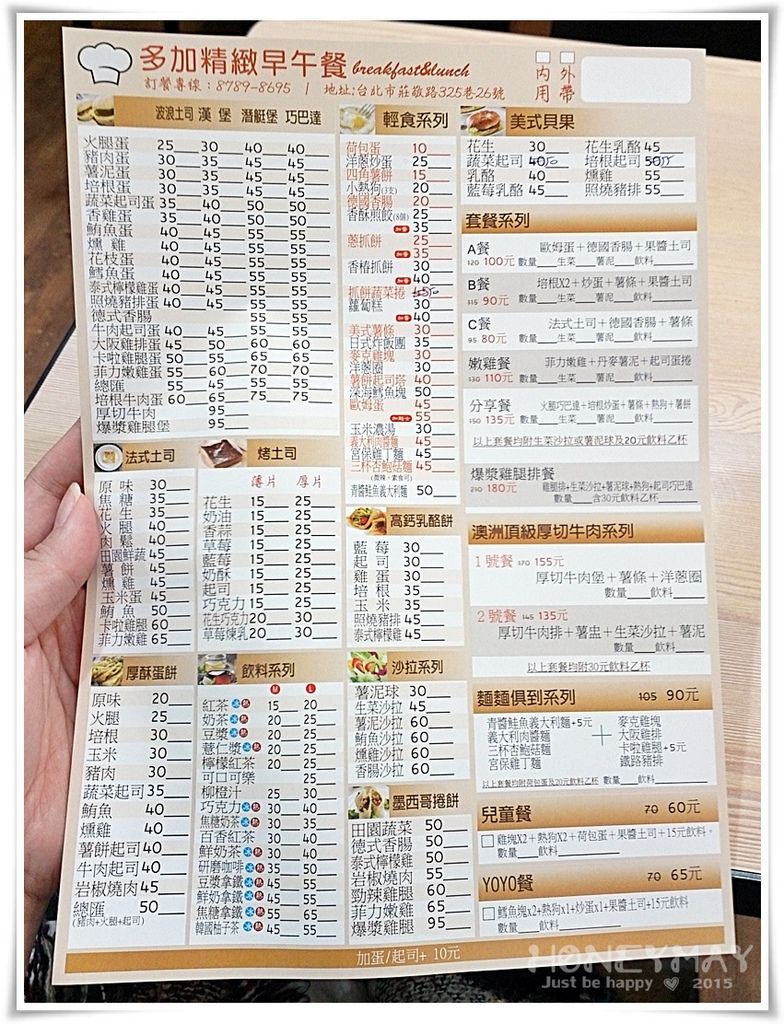 多加精緻早午餐 breakfast&lunch
訂餐專線：8789-8695 | 地址:台北市莊敬路325巷26號
內用 外帶
波浪土司 漢堡 潛艇堡 巧巴達
火腿蛋 25 30 40 40
豬肉蛋 30 35 45 45
薯泥蛋 30 35 45 45
培根蛋 30 35 45 45
蔬菜起司蛋 35 40 50 50
香雞蛋 35 40 50 50
鮪魚蛋 40 45 55 55
燻雞 40 45 55 55
花枝蛋 40 45 55 55
鱈魚蛋 40 45 55 55
泰式檸檬雞蛋 40 45 55 55
照燒豬排蛋 40 45 55 55
德式香腸 55 55
牛肉起司蛋 40 45 55 55
大阪雞排蛋 45 50 60 60
卡啦雞腿蛋 50 55 65 65
菲力嫩雞蛋 55 60 70 70
總匯 55 45 55 55
培根牛肉蛋 60 65 75 75
厚切牛肉 95
爆漿雞腿堡 95
輕食系列
荷包蛋 10
洋蔥炒蛋 25
四角薯餅 15
小熱狗(3支) 20
德國香腸 20
香酥煎餃(8個) 25
加蛋 35
蔥抓餅 25
加蛋 35
香椿抓餅 30
加蛋 40
抓餅蔬菜捲 45 50
蘿蔔糕 30
加蛋 40
美式薯條 30
日式炸飯團 35
麥克雞塊 30
洋蔥圈 30
薯餅起司塔 40
深海鱈魚塊 50
歐姆蛋 45
加起士 55
玉米濃湯 30
義大利肉醬麵 45
宮保雞丁麵 45
三杯杏鮑菇麵 45
(微辣、素食可)
青醬鮭魚義大利麵 50
美式貝果
花生 30 花生乳酪 45
蔬菜起司 40 50 培根起司 50 55
乳酪 40 燻雞 55
藍莓乳酪 45 照燒豬排 55
套餐系列
A餐 歐姆蛋＋德國香腸＋果醬土司
120 100元 數量 生菜 薯泥 飲料
B餐 培根X2＋炒蛋＋薯條＋果醬土司
115 90元 數量 生菜 薯泥 飲料
C餐 法式土司＋德國香腸＋薯條
95 80元 數量 生菜 薯泥 飲料
嫩雞餐 菲力嫩雞＋丹麥薯泥＋起司蛋捲
130 110元 數量 生菜 薯泥 飲料
分享餐 火腿巧巴達＋培根炒蛋＋薯條＋熱狗＋薯餅
150 135元 數量 生菜 薯泥 飲料
以上套餐均附生菜沙拉或薯泥球及20元飲料乙杯
爆漿雞腿排餐 雞腿排+生菜沙拉+薯泥球+熱狗+起司巧巴達
210 180元 數量 含30元飲料乙杯
澳洲頂級厚切牛肉系列
1號餐 170 155元
厚切牛肉堡＋薯條＋洋蔥圈
數量 飲料
2號餐 145 135元
厚切牛肉排＋薯虫＋生菜沙拉＋薯泥
數量 飲料
以上套餐均附30元飲料乙杯
麵麵俱到系列 105 90元
青醬鮭魚義大利麵+5元 麥克雞塊
義大利肉醬麵 大阪雞排
三杯杏鮑菇麵 ＋ 卡啦雞腿+5元
宮保雞丁麵 鐵路豬排
以上套餐均附荷包蛋及20元飲料乙杯 數量 飲料
兒童餐 70 60元
雞塊X2＋熱狗X2＋荷包蛋＋果醬土司＋15元飲料。
數量 飲料
YOYO餐 70 65元
鱈魚塊x2+熱狗x1+炒蛋x1+果醬土司+15元飲料
數量 飲料
法式土司
原味 30
焦糖 35
花生 35
火腿 40
肉鬆 40
田園鮮蔬 45
薯餅 45
燻雞 45
玉米蛋 45
鮪魚 50
卡啦雞腿 60
菲力嫩雞 65
烤土司
薄片 厚片
花生 15 25
奶油 15 25
香蒜 15 25
草莓 15 25
藍莓 15 25
奶酥 15 25
起司 15 25
巧克力 15 25
花生巧克力 20 30
草莓煉乳 20 30
高鈣乳酪餅
藍莓 30
起司 30
雞蛋 30
培根 35
玉米 35
照燒豬排 45
泰式檸檬雞 45
厚酥蛋餅
原味 20
火腿 25
培根 30
玉米 30
豬肉 30
蔬菜起司 35
鮪魚 40
燻雞 40
薯餅起司 40
牛肉起司 40
岩椒燒肉 45
總匯 50
(豬肉+火腿+起司)
飲料系列
M L
紅茶 冰 熱 15 20
奶茶 冰 熱 20 25
豆漿 冰 熱 20 25
薏仁漿 冰 熱 20 25
檸檬紅茶 20 25
可口可樂 20
柳橙汁 25 30
巧克力 冰 熱 30 40
焦糖奶茶 冰 熱 30 35
百香紅茶 30 40
鮮奶茶 冰 熱 30 40
研磨咖啡 冰 熱 35 50
豆漿拿鐵 冰 熱 45 55
鮮奶拿鐵 冰 熱 45 55
焦糖拿鐵 冰 熱 55 65
韓國柚子茶 冰 熱 45 55
沙拉系列
薯泥球 30
生菜沙拉 45
薯泥沙拉 60
鮪魚沙拉 60
燻雞沙拉 60
香腸沙拉 60
墨西哥捲餅
田園蔬菜 50
德式香腸 50
泰式檸檬雞 50
岩椒燒肉 50
勁辣雞腿 60
菲力嫩雞 65
爆漿雞腿 95
加蛋/起司+ 10元
HONEYMAY
Just be happy 2015